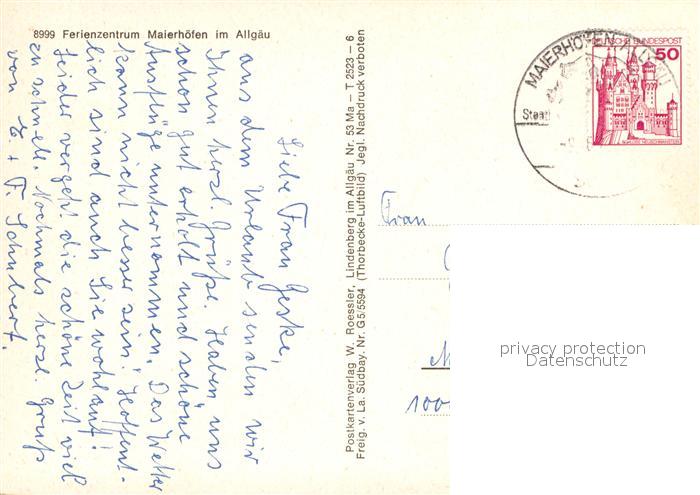 8999 Ferienzentrum Maierhöfen im Allgäu
Liebe Frau Geske,
aus dem Urlaub senden wir
Ihnen herzl. Grüße. Haben uns
schon gut erholt und schöne
Ausflüge unternommen. Das Wetter
kann nicht besser sein! Hoffent-
lich sind auch Sie wohlauf!
Leider vergeht die schöne Zeit viel
zu schnell. Nochmals herzl. Gruß
von E. + F. Schubert.
Postkartenverlag W. Roessler, Lindenberg im Allgäu Nr. 53 Ma – T 2523 – 6
Freig. v. La. Südbay. Nr. G5/5594 (Thorbecke-Luftbild) Jegl. Nachdruck verboten
MAIERHÖFEN
Staatl
DEUTSCHE BUNDESPOST
50
SCHLOSS NEUSCHWANSTEIN
Frau
privacy protection
Datenschutz
100